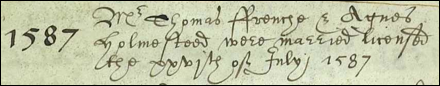 1587
Mr Thomas ffrenche & Agnes
Holmesteed were married licensed
the xxvith of Julyj 1587